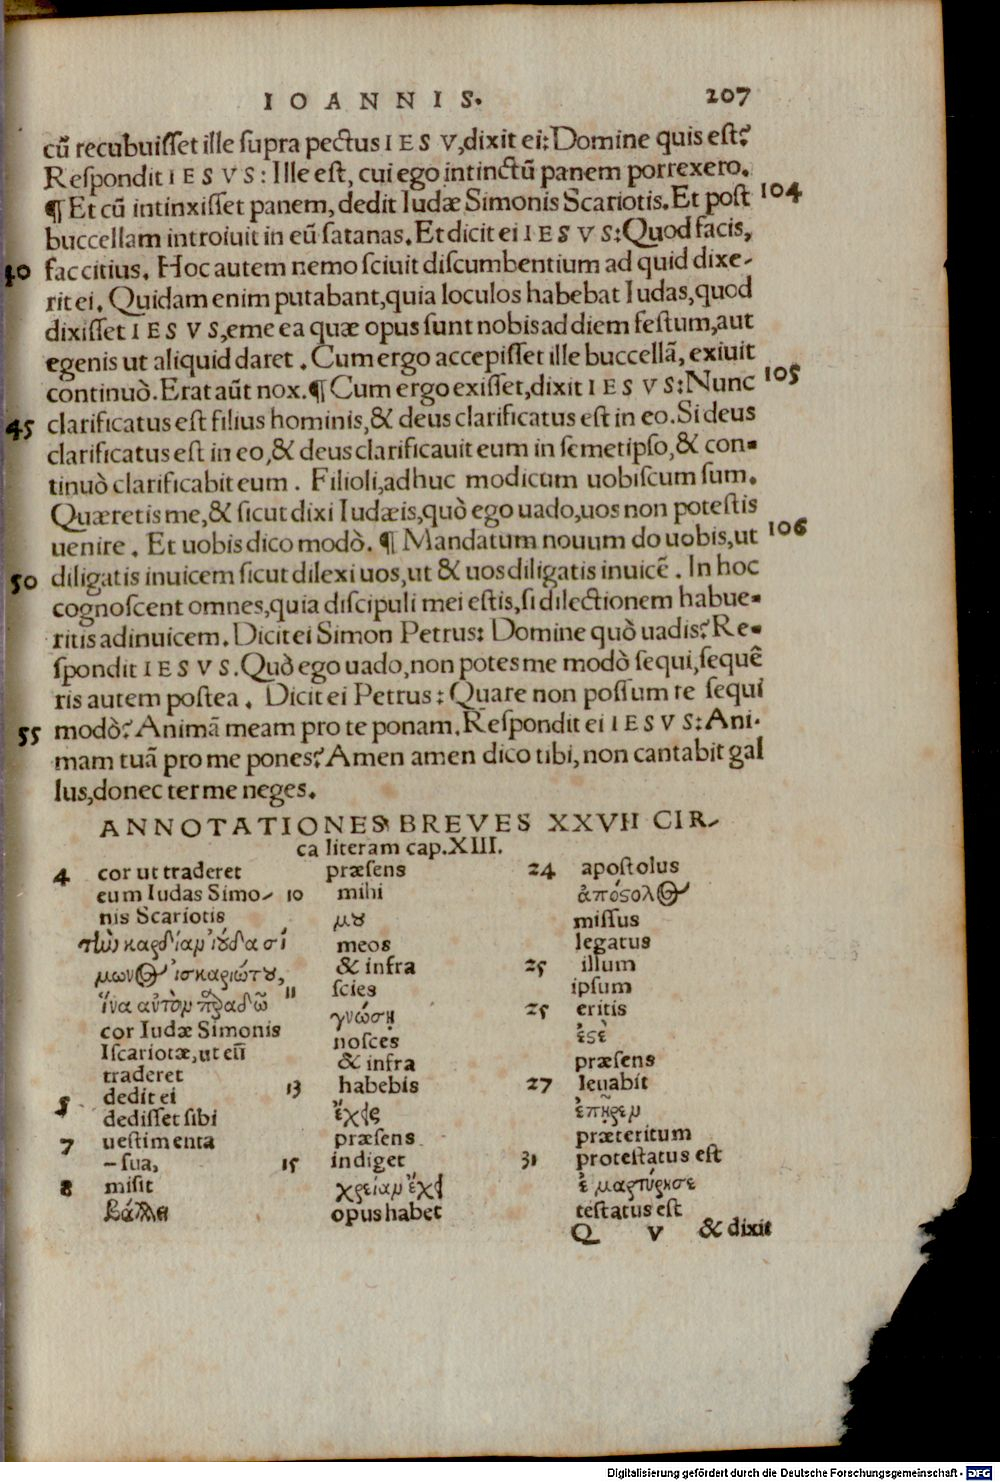 IOANNIS. 207
cũ recubuiſſet ille ſupra pectus IESV, dixit ei: Domine quis eſt?
Reſpondit IESVS: Ille eſt, cui ego intinctũ panem porrexero.
¶ Et cũ intinxiſſet panem, dedit Iudæ Simonis Scariotis. Et poſt 104
buccellam introiuit in eũ ſatanas. Et dicit ei IESVS: Quod facis,
40 fac citius. Hoc autem nemo ſciuit diſcumbentium ad quid dixe-
rit ei. Quidam enim putabant, quia loculos habebat Iudas, quod
dixiſſet IESVS, eme ea quæ opus ſunt nobis ad diem feſtum, aut
egenis ut aliquid daret. Cum ergo accepiſſet ille buccellã, exiuit
continuò. Erat aũt nox. ¶ Cum ergo exiſſet, dixit IESVS: Nunc 105
45 clarificatus eſt filius hominis, & deus clarificatus eſt in eo. Si deus
clarificatus eſt in eo, & deus clarificauit eum in ſemetipſo, & con-
tinuò clarificabit eum. Filioli, adhuc modicum uobiſcum ſum.
Quæretis me, & ſicut dixi Iudæis, quò ego uado, uos non poteſtis
uenire. Et uobis dico modò. ¶ Mandatum nouum do uobis, ut 106
50 diligatis inuicem ſicut dilexi uos, ut & uos diligatis inuicẽ. In hoc
cognoſcent omnes, quia diſcipuli mei eſtis, ſi dilectionem habue-
ritis adinuicem. Dicit ei Simon Petrus: Domine quò uadis? Re-
ſpondit IESVS. Quò ego uado, non potes me modò ſequi, ſequẽ
ris autem poſtea. Dicit ei Petrus: Quare non poſſum te ſequi
55 modò? Animã meam pro te ponam. Reſpondit ei IESVS: Ani-
mam tuã pro me pones? Amen amen dico tibi, non cantabit gal
lus, donec ter me neges.
ANNOTATIONES BREVES XXVII CIR-
ca literam cap. XIII.
4 cor ut traderet
eum Iudas Simo-
nis Scariotis
τὴν καρδίαν ἰούδα σί
μωνος ἰσκαριώτου,
ἵνα αὐτὸν παραδῶ
cor Iudæ Simonis
Iſcariotæ, ut eũ
traderet
5 dedit ei
dediſſet ſibi
7 ueſtimenta
– ſua,
8 miſit
βάλλει
præſens
10 mihi
μου
meos
& infra
11 ſcies
γνώσῃ
noſces
& infra
13 habebis
ἔχεις
præſens
15 indiget
χρείαν ἔχει
opus habet
24 apoſtolus
ἀπόστολος
miſſus
legatus
25 illum
ipſum
25 eritis
ἐστὲ
præſens
27 leuabit
ἐπῆρεν
præteritum
31 proteſtatus eſt
ἐμαρτύρησε
teſtatus eſt
Q v & dixit
Digitalisierung gefördert durch die Deutsche Forschungsgemeinschaft - DFG